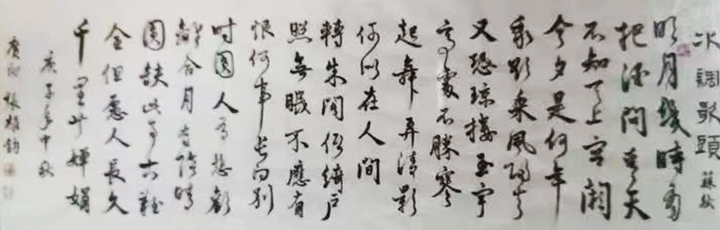 水調歌頭 蘇軾
明月幾時有
把酒問青天
不知天上宮闕
今夕是何年
我欲乘風歸去
又恐瓊樓玉宇
高處不勝寒
起舞弄清影
何似在人間
轉朱閣低綺戶
照無眠不應有
恨何事長向別
時圓人有悲歡
離合月有陰晴
圓缺此事古難
全但愿人長久
千里共嬋娟
庚子年中秋
張